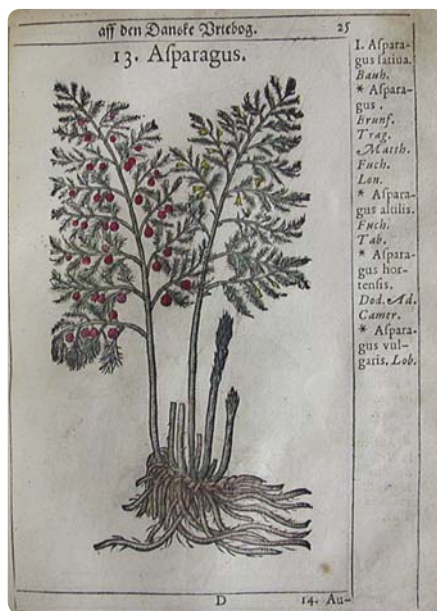 aff den Danske Vrtebog. 25
13. Aſparagus.
I. Aſpara-
gus ſatiua.
Bauh.
* Aſpara-
gus.
Brunf.
Trag.
Matth.
Fuch.
Lon.
* Aſpara-
gus altilis.
Fuch.
Tab.
* Aſpara-
gus hor-
tenſis.
Dod. Ad.
Camer.
* Aſpara-
gus vul-
garis. Lob.
D 14. Au-